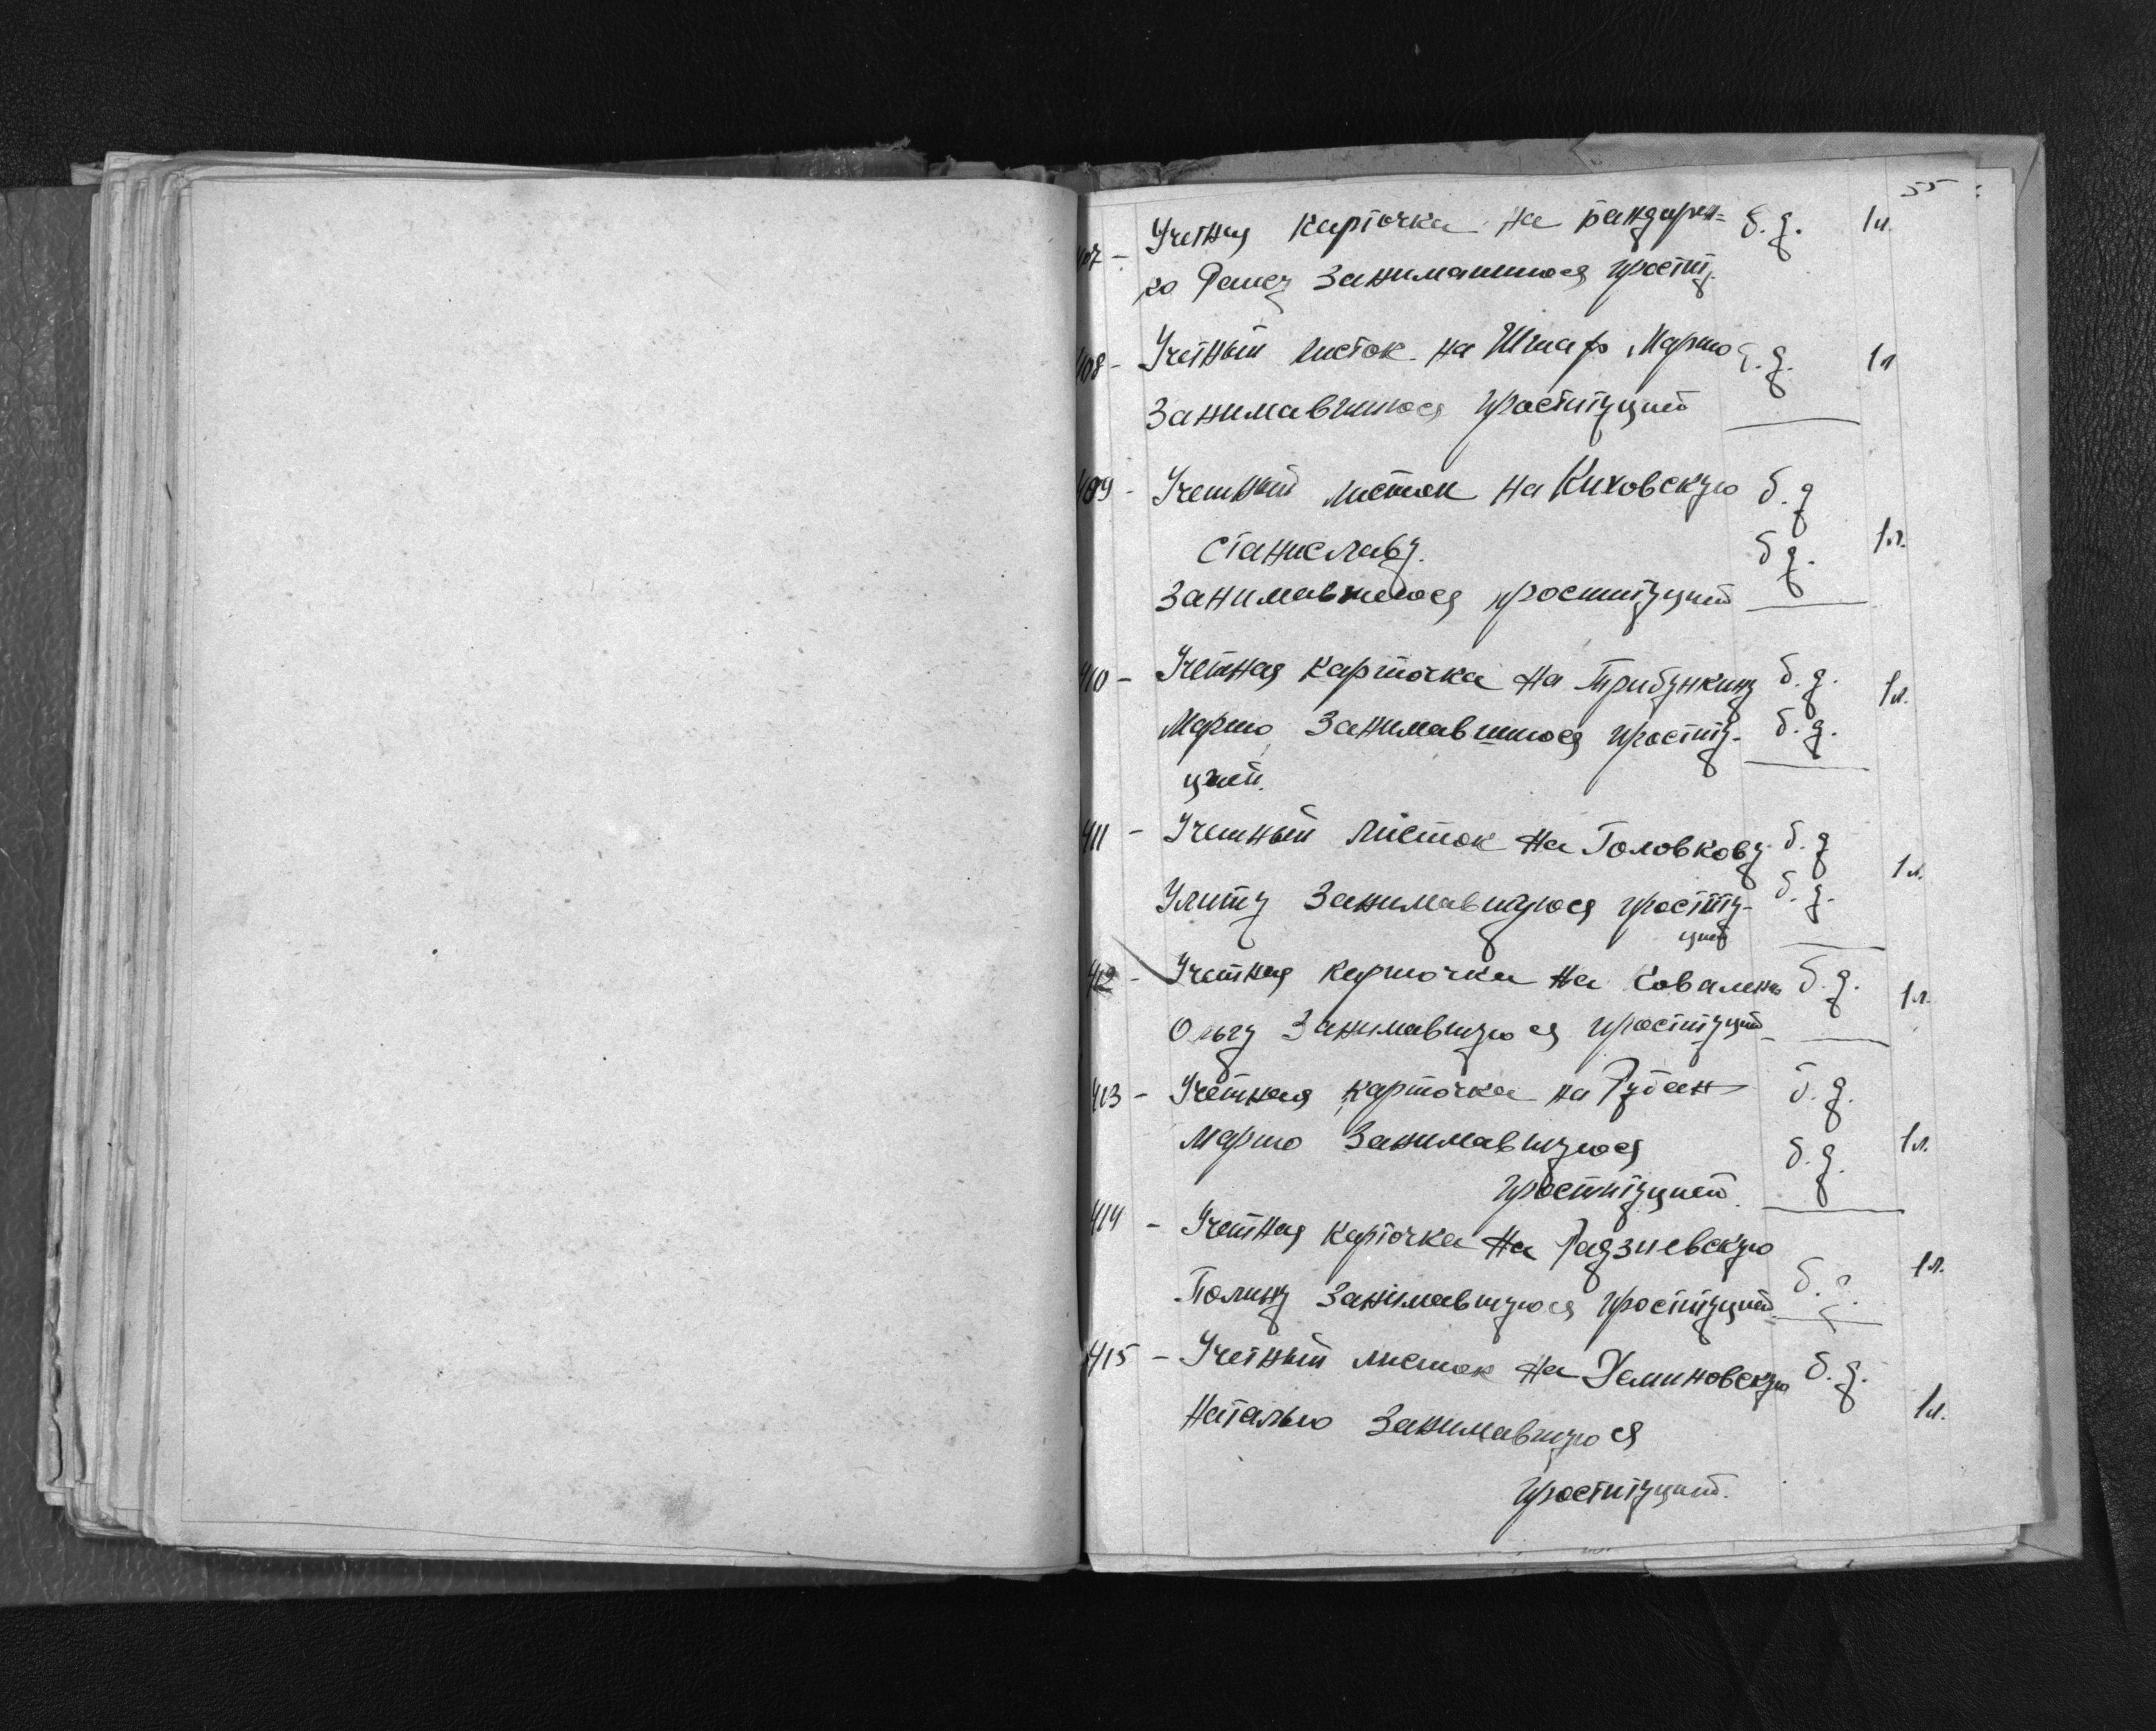 55
407 - Учетная карточка на Бандарен= б.д. 1л.
ко Раису занимавшиюся простит.
408 - Учетный листок на Шпар Марию б.д. 1л
занимавшиюся проституцией
409 - Учетный листок на Киховскую б.д
Станиславу. б д. 1л.
занимавшеюся проституцией
410 - Учетная карточка на Трибункину б.д. 1л.
Марию занимавшиюся проститу- б.д.
цией.
411 - Учетный листок на Головкову б.д
Улиту занимавшуюся проститу- б.д. 1л.
цией
412 - Учетная карточка на Ковалень б.д. 1л.
Ольгу занимавшуюся проституцией
413 - Учетная карточка на Рубан б.д.
Марию занимавшуюся б.д. 1л.
проституцией.
414 - Учетная карточка на Радзиевскую
Полину занимавшуюся проституцией б.д. 1л.
415 - Учетный листок на Уеминовскую б.д.
Наталью занимавшуюся 1л.
проституцией.